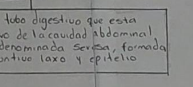 tubo digestivo que esta
vo de la cavidad abdominal
denominada serosa, formada
untivo laxo y epitelio